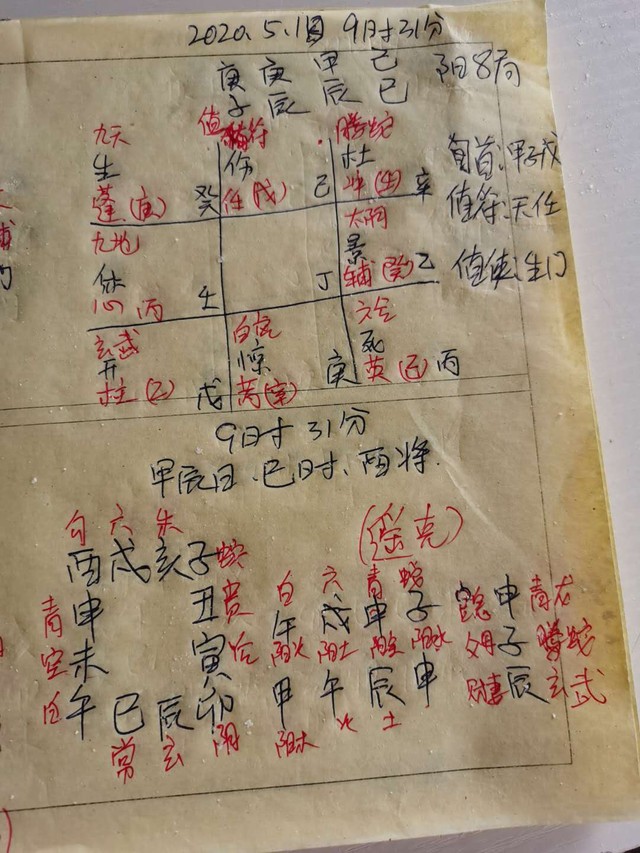 2020.5.1日 9时31分
庚 庚 甲 己 阳8局
子 辰 辰 巳
九天 值符 腾蛇
生 伤 杜 旬首:甲子戊
蓬(庚) 癸 任(戊) 己 冲(壬) 辛 值符:天任
九地 太阴
休 景 值使:生门
心 丙 壬 丁 辅(癸) 乙
玄武 白虎 六合
开 惊 死
柱(乙) 戊 芮(辛) 庚 英(己) 丙
9时31分
甲辰日、巳时、酉将.
勾 六 朱 (遥克)
酉 戌 亥 子 蛇 白 六 青 蛇
青 申 丑 贵 午 戌 申 子 申 青龙
空 未 寅 阳火 阳土 阳金 阳水 父母 子 腾蛇
白 午 巳 辰 卯 甲 午 辰 申 辰 玄武
常 玄 阴 阳木 火 土